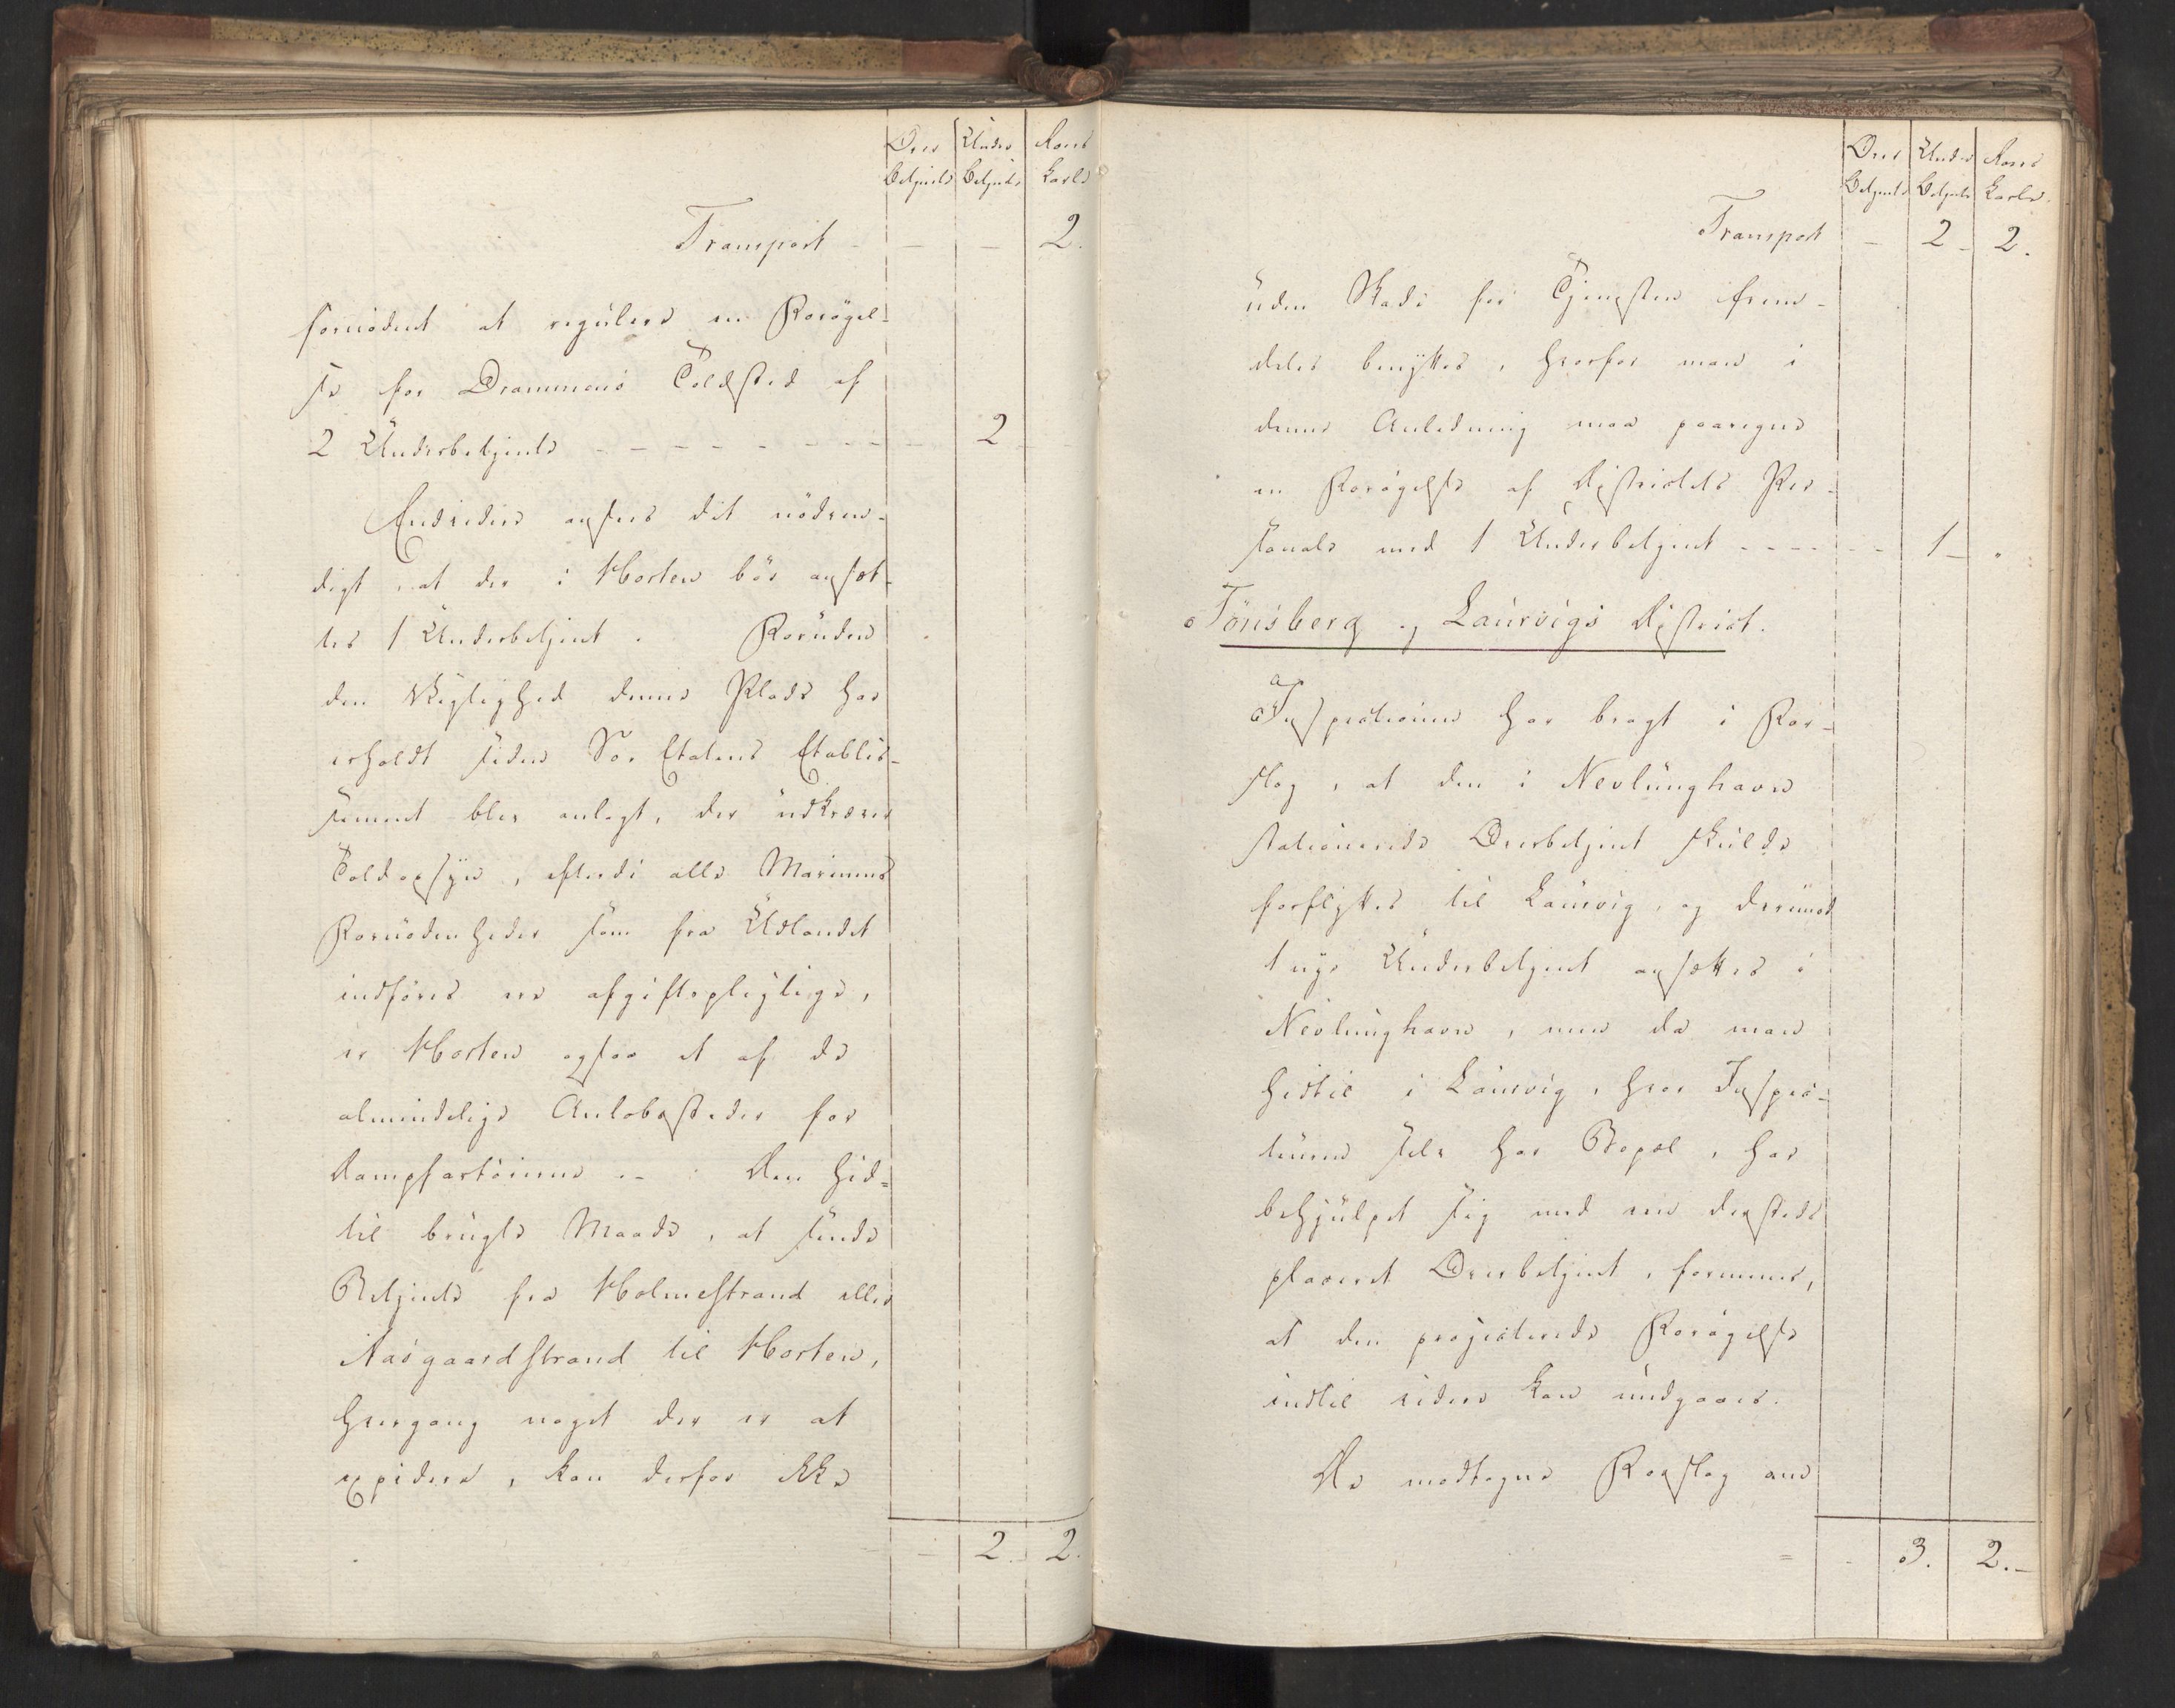 Over Under Roers
betjente Betjente karle
Transport - - - 2.
fornødent at regulere en Forøgel-
se for Drammens Toldsted af
2 Underbetjente - - - - - - - - - 2
Endvidere ansees det nødven-
digt, at der i Horten bør ansæt-
tes 1 Underbetjent. Foruden
den Vigtighed denne Plads har
erholdt siden Søe Etatens Etablis-
sement blev anlagt, der udkræver
Toldopsyn, efterdi alle Marinens
Fornødenheder som fra Udlandet
indføres ere afgiftspligtige,
er Horten ogsaa et af de
almindelige Anløbssteder for
Dampfartøierne. - Den hid-
til brugte Maade, at sende
Betjente fra Holmestrand eller
Aasgaardstrand til Horten,
hvergang noget der er at
expedere, kan derfor ikke
- 2. 2.
Over Under Roers
Betjente Betjente karle.
Transport - 2 - 2.
uden Skade for Tjenesten frem-
deles benyttes, hvorfor man i
denne Anledning maa paaregne
en Forøgelse af Districtets Per-
sonale med 1 Underbetjent - - - - - - 1 - "
Tönsberg og Laurvigs District.
a
Inspecteuren har bragt i For-
slag, at den i Nevlunghavn
stationerede Overbetjent skulde
forflyttes til Laurvig, og derimod
1 nye Underbetjent ansættes i
Nevlunghavn, men da man
hidtil i Laurvig, hvor Inspec-
teuren selv har Bopæl, har
behjulpet sig med een dersteds
placeret Overbetjent, formenes,
at den projecterede Forøgelse
indtil videre kan undgaaes.
De modtagne Forslag om
= - 3. 2. -